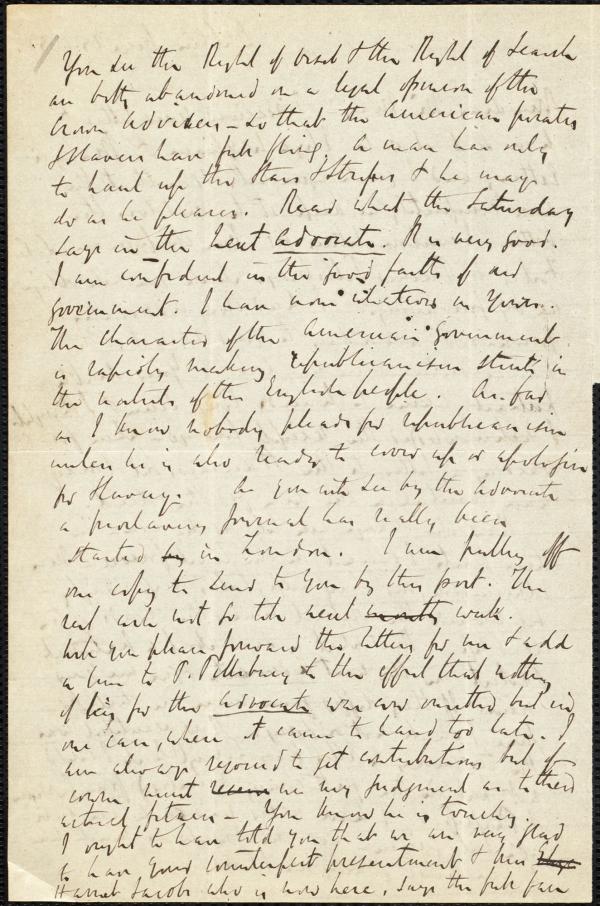 You see the Right of visit & the Right of Search
are both abandoned on a legal opinion of the
Crown advisers – so that the American pirates
& slavers have full fling. A man has only
to haul up the Stars & Stripes & he may
do as he pleases. Read what the Saturday
says in the next Advocate. It is very good.
I am confident in the good faith of our
government. I have none whatever in yours.
The character of the American government
is rapidly making republicanism stink in
the nostrils of the English people. As far
as I know nobody pleads for republicanism
unless he is also ready to cover up or apologise
for slavery. As you will see by the Advocate
a proslavery journal has really been
started by in London. I am pulling off
one copy to send to you by this post. The
rest will not go till next month week.
Will you please forward the letters for me & add
a line to P. Pillsbury to the effect that nothing
of his for the Advocate was ever omitted but in
one case, where it came to hand too late. I
am always rejoiced to get contributions but of
course must use my judgment as to their
actual fitness – You know he is touchy.
I ought to have told you that we are very glad
to have your counterfeit presentment & Mrs
Harriet Jacobs who is now here, says the full face